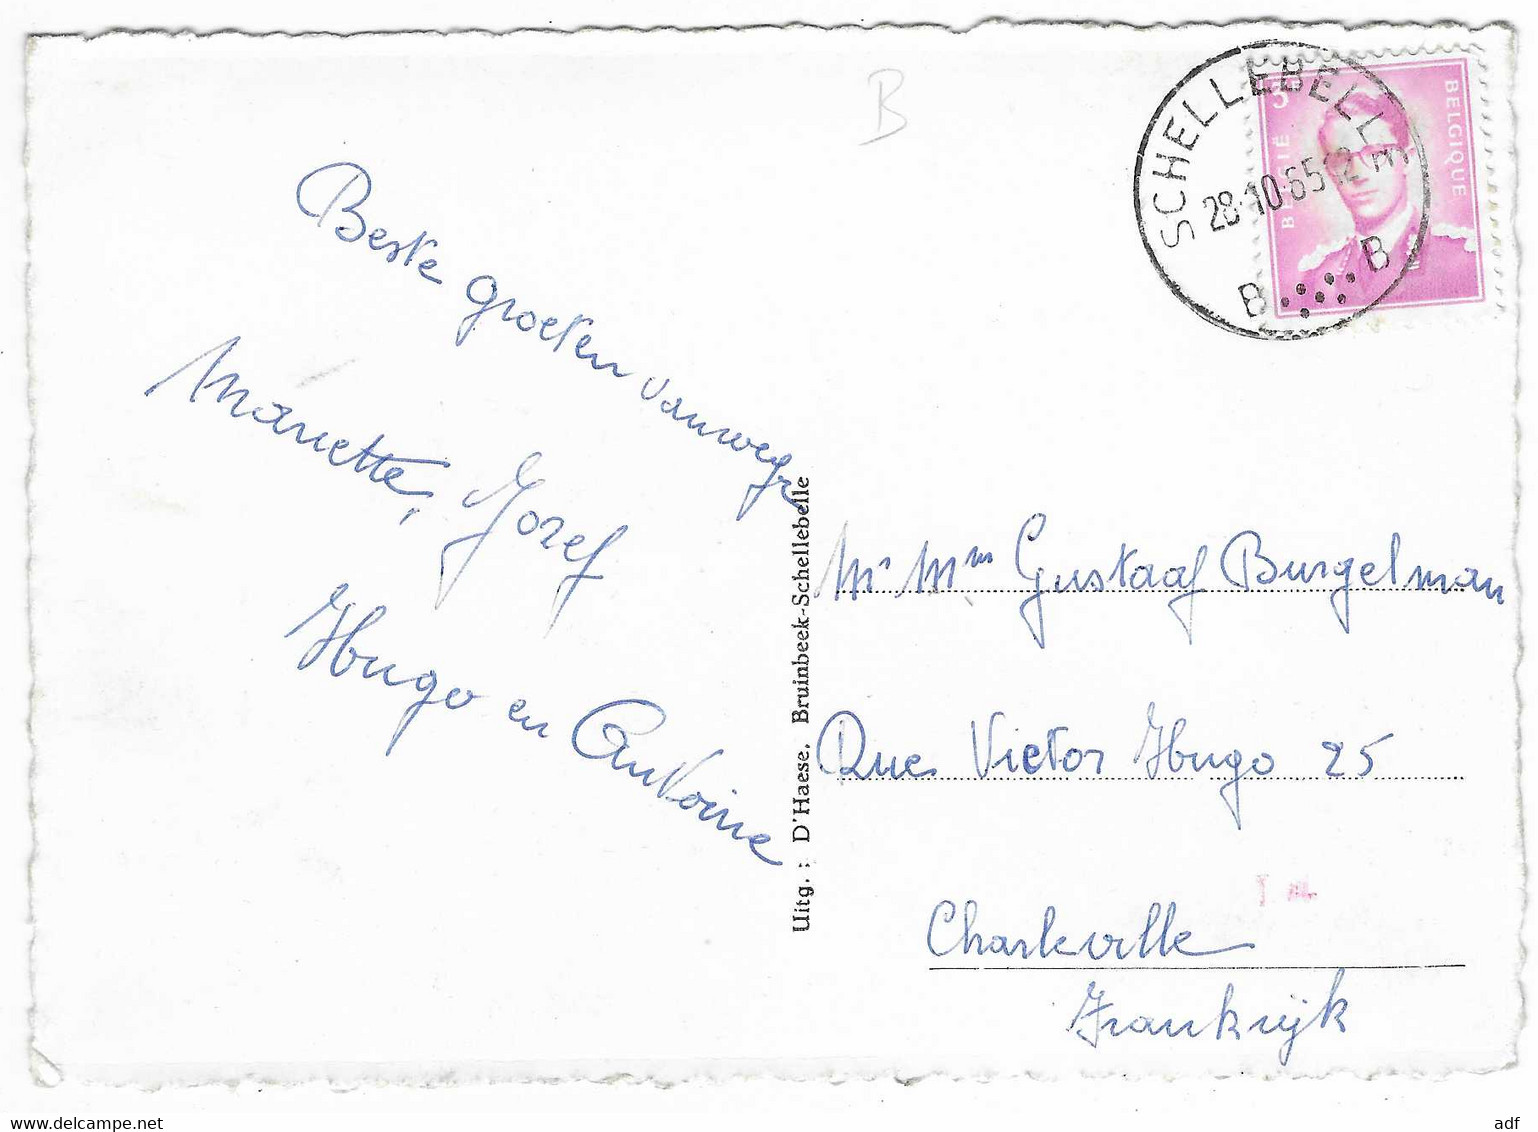 B
SCHELLEBELLE
28-10-65 12
B B
3
BELGIË
BELGIQUE
Beste groeten vanwege
Mariette, Jozef
Hugo en Antoine
Uitg. : D'Haese, Bruinbeek-Schellebelle
Mr Mm Gustaaf Burgelman
Rue Victor Hugo 25
Charleville
Frankrijk
www.delcampe.net
adf